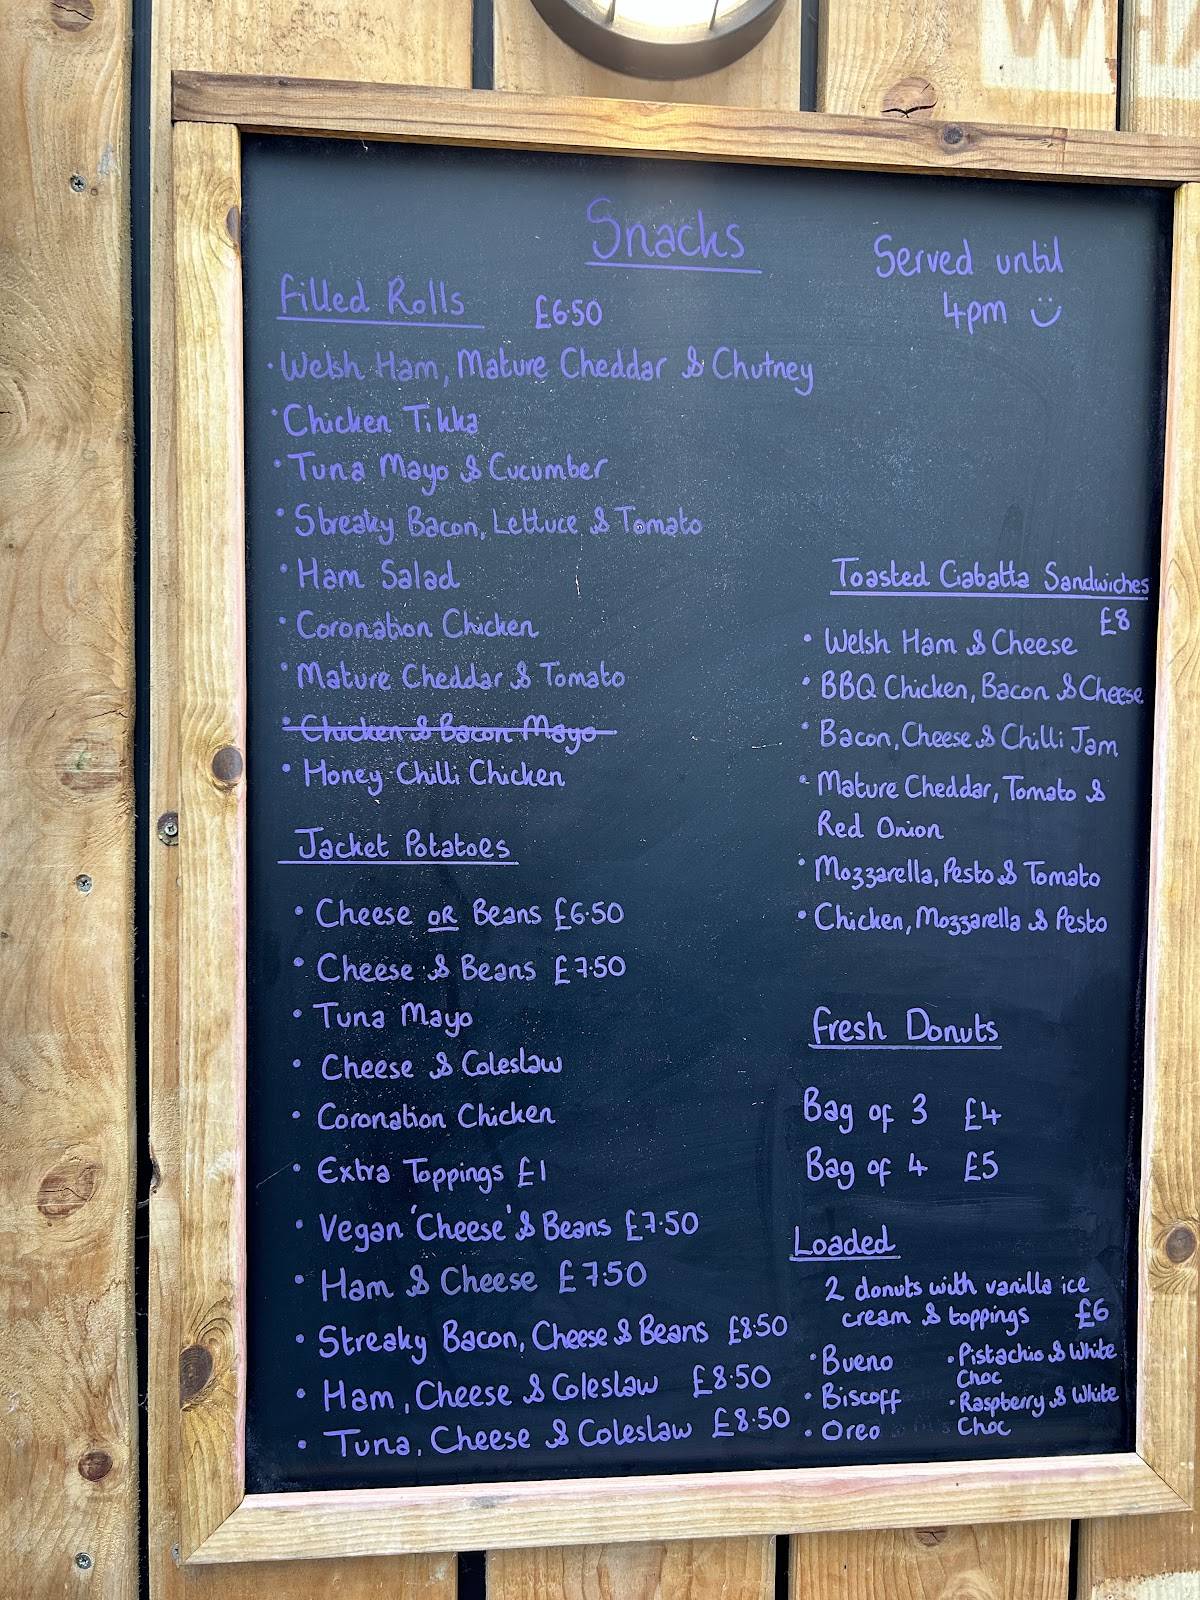 Snacks
Served until
4pm
Filled Rolls £6.50
• Welsh Ham, Mature Cheddar & Chutney
• Chicken Tikka
• Tuna Mayo & Cucumber
• Streaky Bacon, Lettuce & Tomato
• Ham Salad
• Coronation Chicken
• Mature Cheddar & Tomato
• Chicken & Bacon Mayo
• Honey Chilli Chicken
Jacket Potatoes
• Cheese OR Beans £6.50
• Cheese & Beans £7.50
• Tuna Mayo
• Cheese & Coleslaw
• Coronation Chicken
• Extra Toppings £1
• Vegan 'Cheese' & Beans £7.50
• Ham & Cheese £7.50
• Streaky Bacon, Cheese & Beans £8.50
• Ham, Cheese & Coleslaw £8.50
• Tuna, Cheese & Coleslaw £8.50
Toasted Ciabatta Sandwiches
£8
• Welsh Ham & Cheese
• BBQ Chicken, Bacon & Cheese
• Bacon, Cheese & Chilli Jam
• Mature Cheddar, Tomato &
Red Onion
• Mozzarella, Pesto & Tomato
• Chicken, Mozzarella & Pesto
Fresh Donuts
Bag of 3 £4
Bag of 4 £5
Loaded
2 donuts with vanilla ice
cream & toppings £6
• Bueno
• Biscoff
• Oreo
• Pistachio & White
Choc
• Raspberry & White
Choc